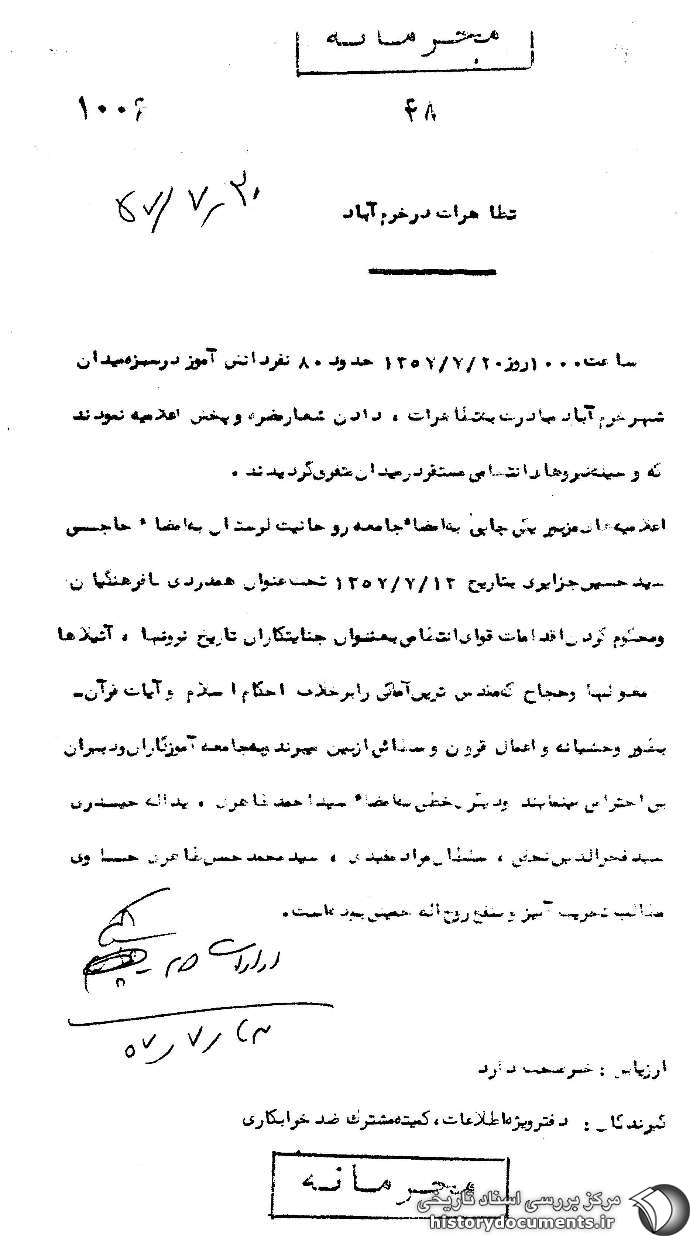 محرمانه
۴۸
۱۰۰۶
۵۷/۷/۳۰
تظاهرات در خرم آباد
ساعت ۱۰۰۰ روز ۱۳۵۷/۷/۲۰ حدود ۸۰ نفر دانش آموز در سبزه میدان
شهر خرم آباد مبادرت به تظاهرات ، دادن شعار مضره و پخش اعلامیه نمودند
که وسیله نیروهای انتظامی مستقر در میدان متفرق گردیدند .
اعلامیه های مزبور یکی چاپی به امضاء جامعه روحانیت لرستان به امضاء حاجی
سید حسین جزایری بتاریخ ۱۳۵۷/۷/۱۲ تحت عنوان همدردی با فرهنگیان
و محکوم کردن اقدامات قوای انتظامی به عنوان جنایتکاران تاریخ نرونها ، آتیلاها
مغولها و حجاج که مقدس ترین اماکن را برخلاف احکام اسلام و آیات قرآن
بطور وحشیانه و اعمال قرون وسطائی از بین میبرند به جامعه آموزگاران و دبیران
بی احترامی مینمایند و دیگری خطی به امضاء سید احمد طاهری ، یداله حیدری
سید فخرالدین ، سلطان مراد مفیدی ، سید محمد حسن طاهری حاوی
مطالب تحریک آمیز و بنفع روح اله خمینی بوده است .
۵۷/۷/
ارزیابی : خبر صحت دارد
گیرندگان : دفتر ویژه اطلاعات ، کمیته مشترک ضد خرابکاری
محرمانه
مرکز بررسی اسناد تاریخی
historydocuments.ir